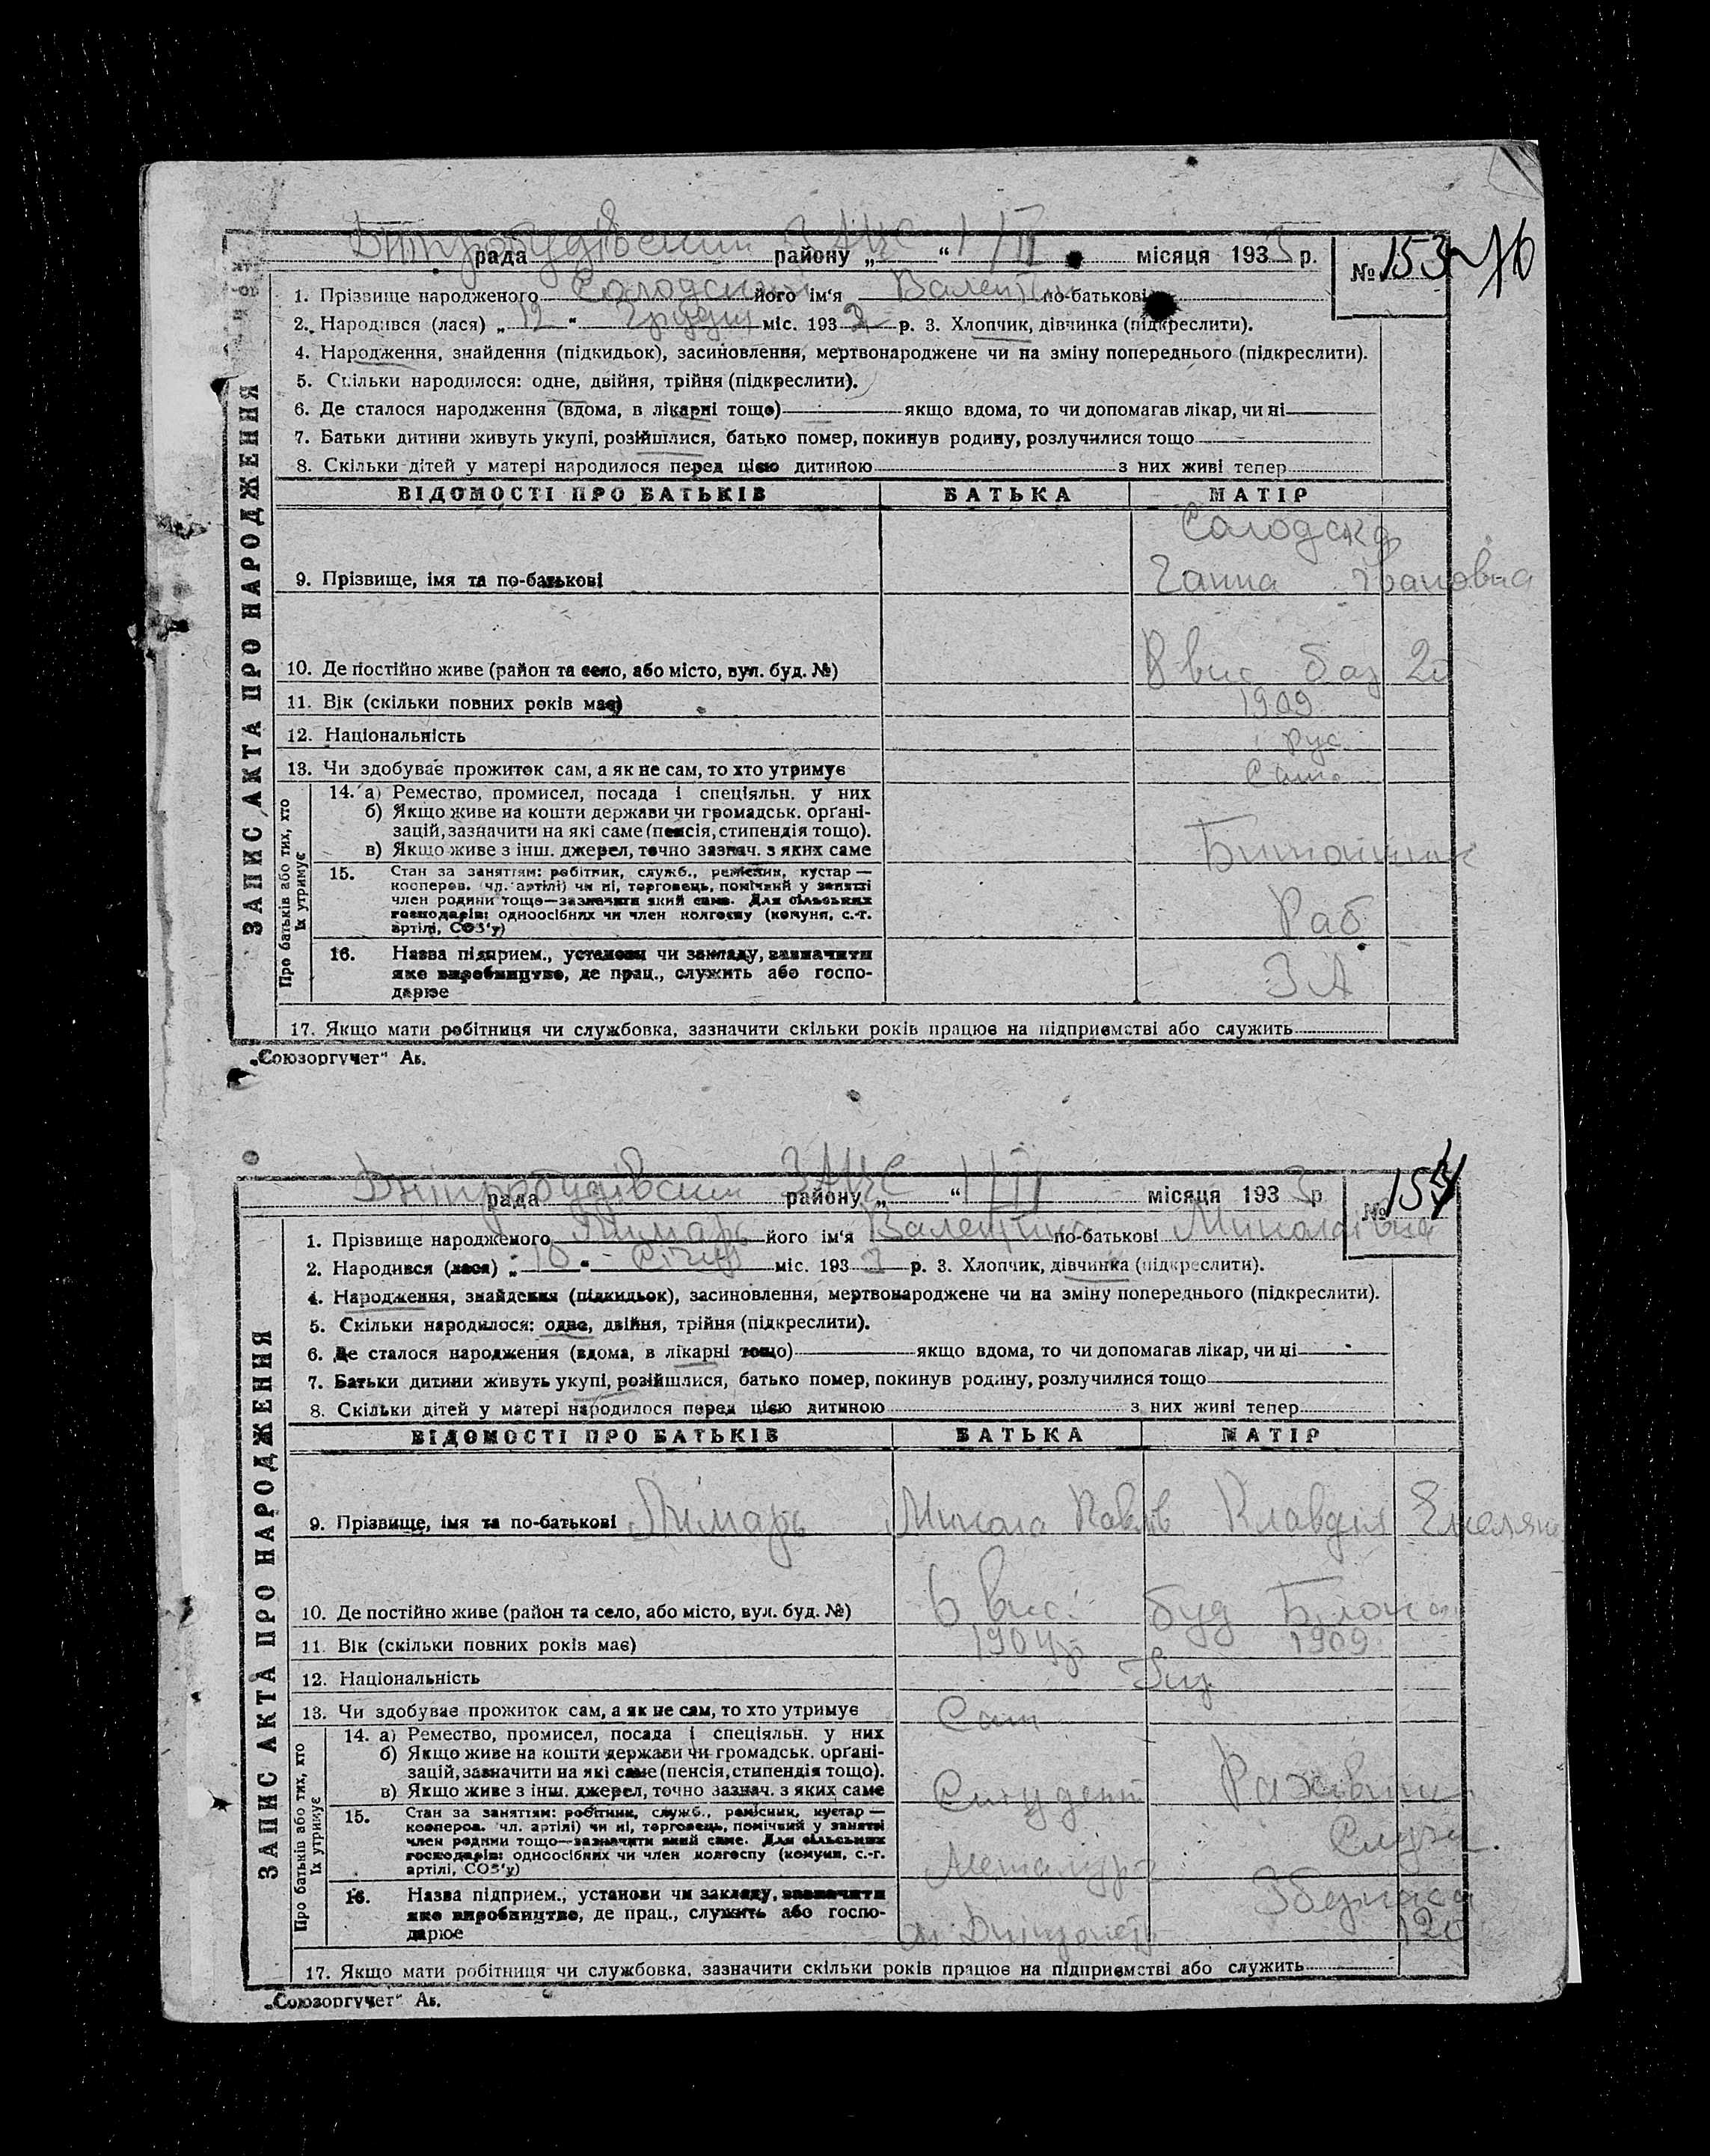 Дніпробудівський ЗАЦС 1/ІІ
рада району „ “ місяця 1933 р. № 153 76
1. Прізвище народженого Солодский його ім'я Валентин по-батькові
2. Народився (лася) „12“ Грудня міс. 1932 р. 3. Хлопчик, дівчинка (підкреслити).
4. Народження, знайдення (підкидьок), засиновлення, мертвонароджене чи на зміну попереднього (підкреслити).
5. Скільки народилося: одне, двійня, трійня (підкреслити).
6. Де сталося народження (вдома, в лікарні тощо) якщо вдома, то чи допомагав лікар, чи ні
7. Батьки дитини живуть укупі, розійшлися, батько помер, покинув родину, розлучилися тощо
8. Скільки дітей у матері народилося перед цією дитиною з них живі тепер
ЗАПИС АКТА ПРО НАРОДЖЕННЯ
ВІДОМОСТІ ПРО БАТЬКІВ БАТЬКА МАТІР
Солодска
9. Прізвище, імя та по-батькові Ганна Івановна
10. Де постійно живе (район та село, або місто, вул. буд. №) 8 вис баз 20
11. Вік (скільки повних років має) 1909
12. Національність рус
13. Чи здобуває прожиток сам, а як не сам, то хто утримує Сам.
Про батьків або тих, хто їх утримує
14. а) Ремество, промисел, посада і спеціяльн. у них
б) Якщо живе на кошти держави чи громадськ. орґані-
зацій, зазначити на які саме (пенсія, стипендія тощо).
в) Якщо живе з інш. джерел, точно зазнач. з яких саме
15. Стан за заняттям: робітник, служб., ремісник, кустар —
кооперов. (чл. артілі) чи ні, торговець, помічний у занятті
член родини тощо—зазначити який саме. Для сільських
господарів: одноосібних чи член колгоспу (комуни, с.-г.
артілі, СОЗ'у) Раб
16. Назва підприєм., установи чи закладу, зазначити
яке виробництво, де прац., служить або госпо-
дарює ЗА
17. Якщо мати робітниця чи службовка, зазначити скільки років працює на підприємстві або служить
„Союзоргучет“ Ав.
Дніпробудівский ЗАЦС 1/ІІ
рада району „ “ місяця 1933 р. № 154
1. Прізвище народженого Лимарь його ім'я Валентина по-батькові Миколаівна
2. Народився (лася) „10“ Січня міс. 1933 р. 3. Хлопчик, дівчинка (підкреслити).
4. Народження, знайдення (підкидьок), засиновлення, мертвонароджене чи на зміну попереднього (підкреслити).
5. Скільки народилося: одне, двійня, трійня (підкреслити).
6. Де сталося народження (вдома, в лікарні тощо) якщо вдома, то чи допомагав лікар, чи ні
7. Батьки дитини живуть укупі, розійшлися, батько помер, покинув родину, розлучилися тощо
8. Скільки дітей у матері народилося перед цією дитиною з них живі тепер
ЗАПИС АКТА ПРО НАРОДЖЕННЯ
ВІДОМОСТІ ПРО БАТЬКІВ БАТЬКА МАТІР
9. Прізвище, імя та по-батькові Лимарь Микола Павлів Клавдія Емелян
10. Де постійно живе (район та село, або місто, вул. буд. №) 6 вис. буд
11. Вік (скільки повних років має) 1904р 1909
12. Національність Укр
13. Чи здобуває прожиток сам, а як не сам, то хто утримує Сам
Про батьків або тих, хто їх утримує
14. а) Ремество, промисел, посада і спеціяльн. у них
б) Якщо живе на кошти держави чи громадськ. орґані-
зацій, зазначити на які саме (пенсія, стипендія тощо).
в) Якщо живе з інш. джерел, точно зазнач. з яких саме Студент Рахівник
15. Стан за заняттям: робітник, служб., ремісник, кустар —
кооперов. чл. артілі) чи ні, торговець, помічний у занятті
член родини тощо—зазначити який саме. Для сільських
господарів: одноосібних чи член колгоспу (комуни, с.-г.
артілі, СОЗ'у) Металург Служ.
16. Назва підприєм., установи чи закладу, зазначити Збер.каса
яке виробництво, де прац., служить або госпо-
дарює
17. Якщо мати робітниця чи службовка, зазначити скільки років працює на підприємстві або служить
„Союзоргучет“ Ав.